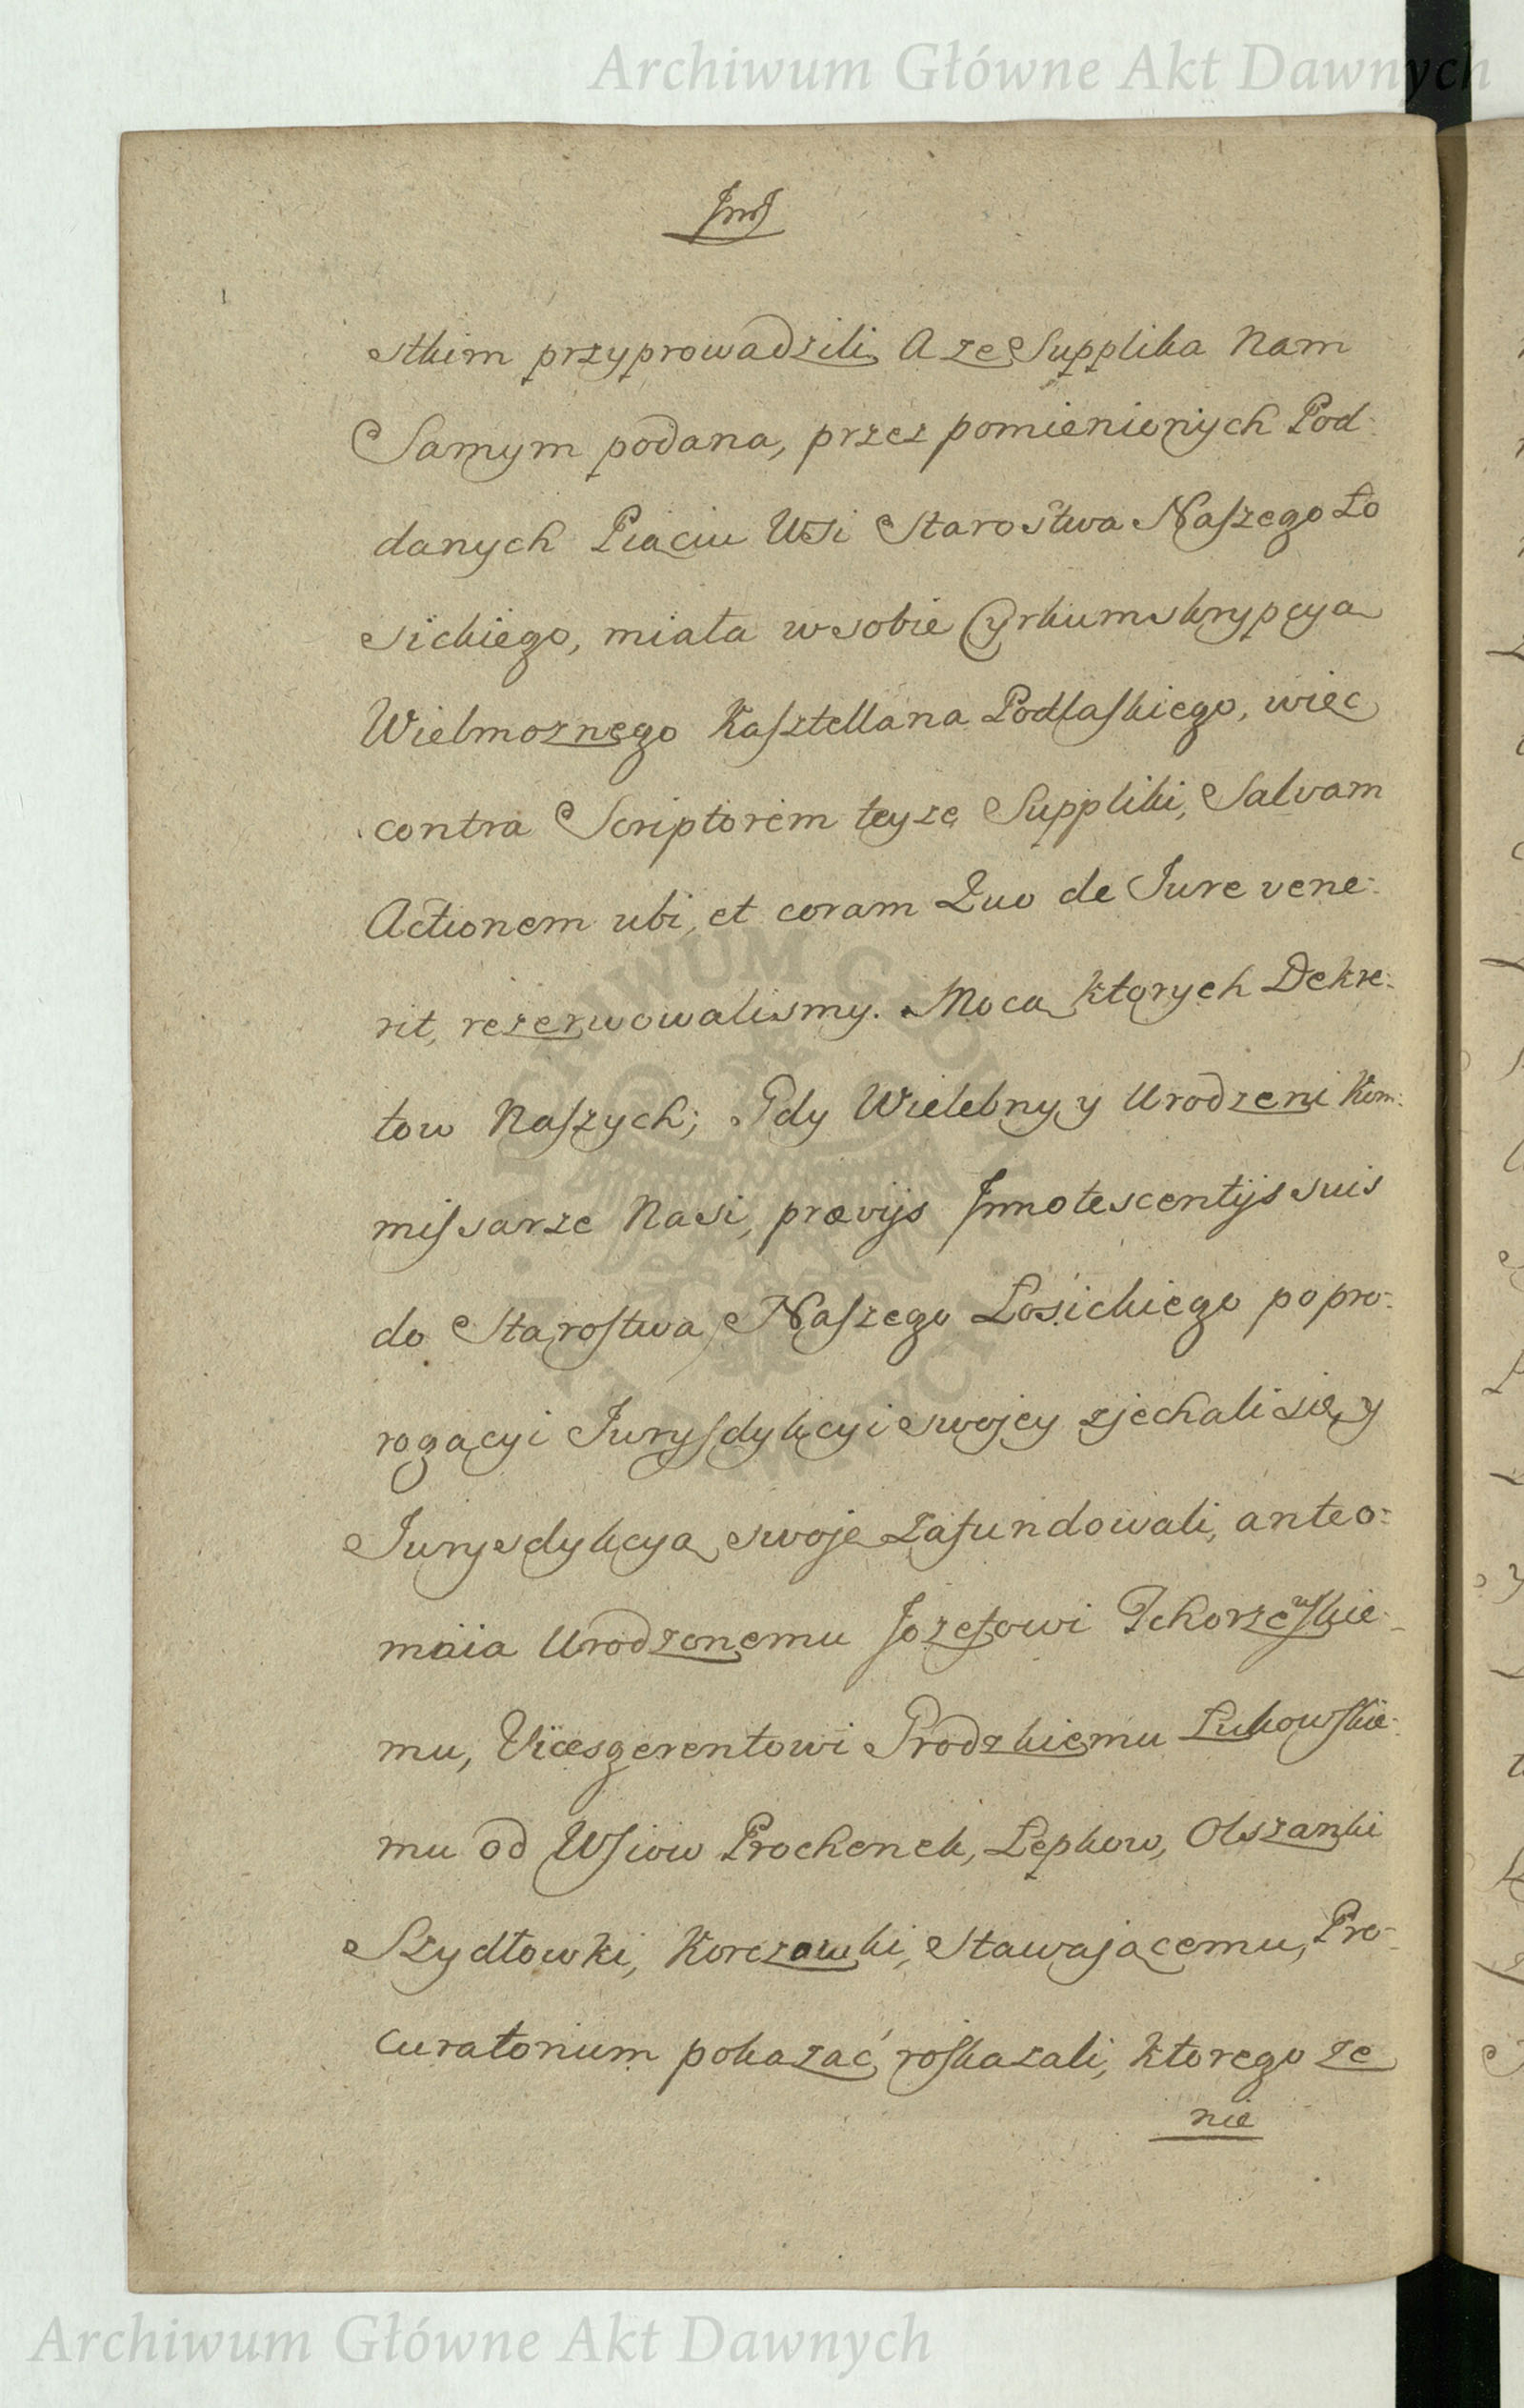 Archiwum Główne Akt Dawnych
stkim przyprowadzili, A ze Supplika Nam
Samym podana, przez pomienionych Pod:
danych Piąciu Wsi Starostwa Naszego Ło
sickiego, miała w sobie Cyrkumskrypcyą
Wielmoznego Kasztellana Podlaskiego, więc
contra Scriptorem teyze Suppliki, Salvam
Actionem ubi, et coram Quo de Jure vene:
rit, rezerwowalismy. Mocą ktorych Dekre:
tow Naszych; Gdy Wielebny y Urodzeni Kom:
missarze Nasi, prævijs Innotescentijs suis
do Starostwa Naszego Łosickiego po pro:
rogacyi Jurysdykcyi swojey zjechali się, y
Jurysdykcyą swoję zafundowali, anteo:
mnia Urodzonemu Jozefowi Tchorzewskie:
mu, Vicesgerentowi Grodzkiemu Łukowskie:
mu od Wsiow Prochenek, Łepkow, Olszanki
Szydłowki, Korczowki, Stawającemu, Pro:
curatorium pokazać roskazali, ktorego ze
nie
ARCHIWUM GŁÓWNE AKT DAWNYCH
Archiwum Główne Akt Dawnych